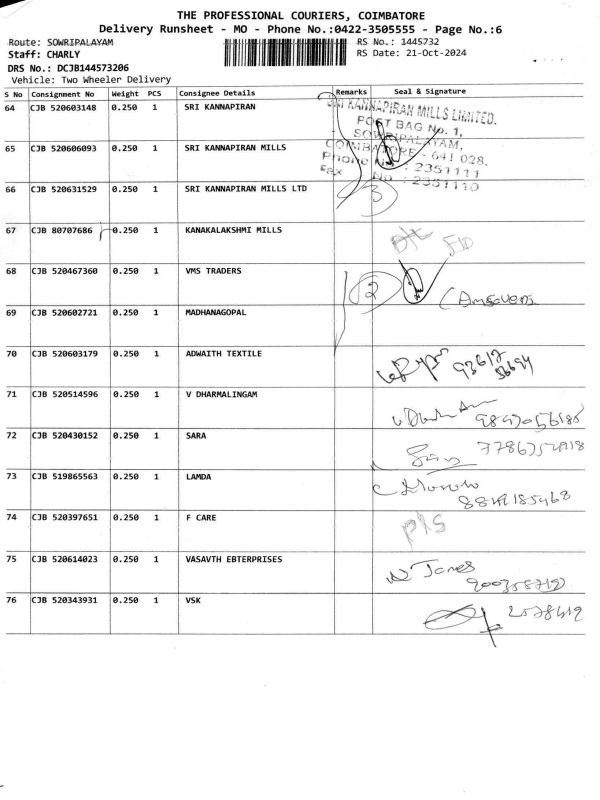 THE PROFESSIONAL COURIERS, COIMBATORE
Delivery Runsheet - MO - Phone No.:0422-3505555 - Page No.:6
Route: SOWRIPALAYAM
RS No.: 1445732
Staff: CHARLY
RS Date: 21-Oct-2024
DRS No.: DCJB144573206
Vehicle: Two Wheeler Delivery
S No Consignment No Weight PCS Consignee Details Remarks Seal & Signature
64 CJB 520603148 0.250 1 SRI KANNAPIRAN
SRI KANNAPIRAN MILLS LIMITED.
POST BAG No. 1,
SOWRIPALAYAM,
65 CJB 520606093 0.250 1 SRI KANNAPIRAN MILLS
COIMBATORE - 641 028.
Phone No. : 2351111
Fax No. : 2351110
66 CJB 520631529 0.250 1 SRI KANNAPIRAN MILLS LTD
3
67 CJB 80707686 0.250 1 KANAKALAKSHMI MILLS
68 CJB 520467360 0.250 1 VMS TRADERS
2
69 CJB 520602721 0.250 1 MADHANAGOPAL
70 CJB 520603179 0.250 1 ADWAITH TEXTILE
71 CJB 520514596 0.250 1 V DHARMALINGAM
72 CJB 520430152 0.250 1 SARA
73 CJB 519865563 0.250 1 LAMDA
74 CJB 520397651 0.250 1 F CARE
75 CJB 520614023 0.250 1 VASAVTH EBTERPRISES
76 CJB 520343931 0.250 1 VSK